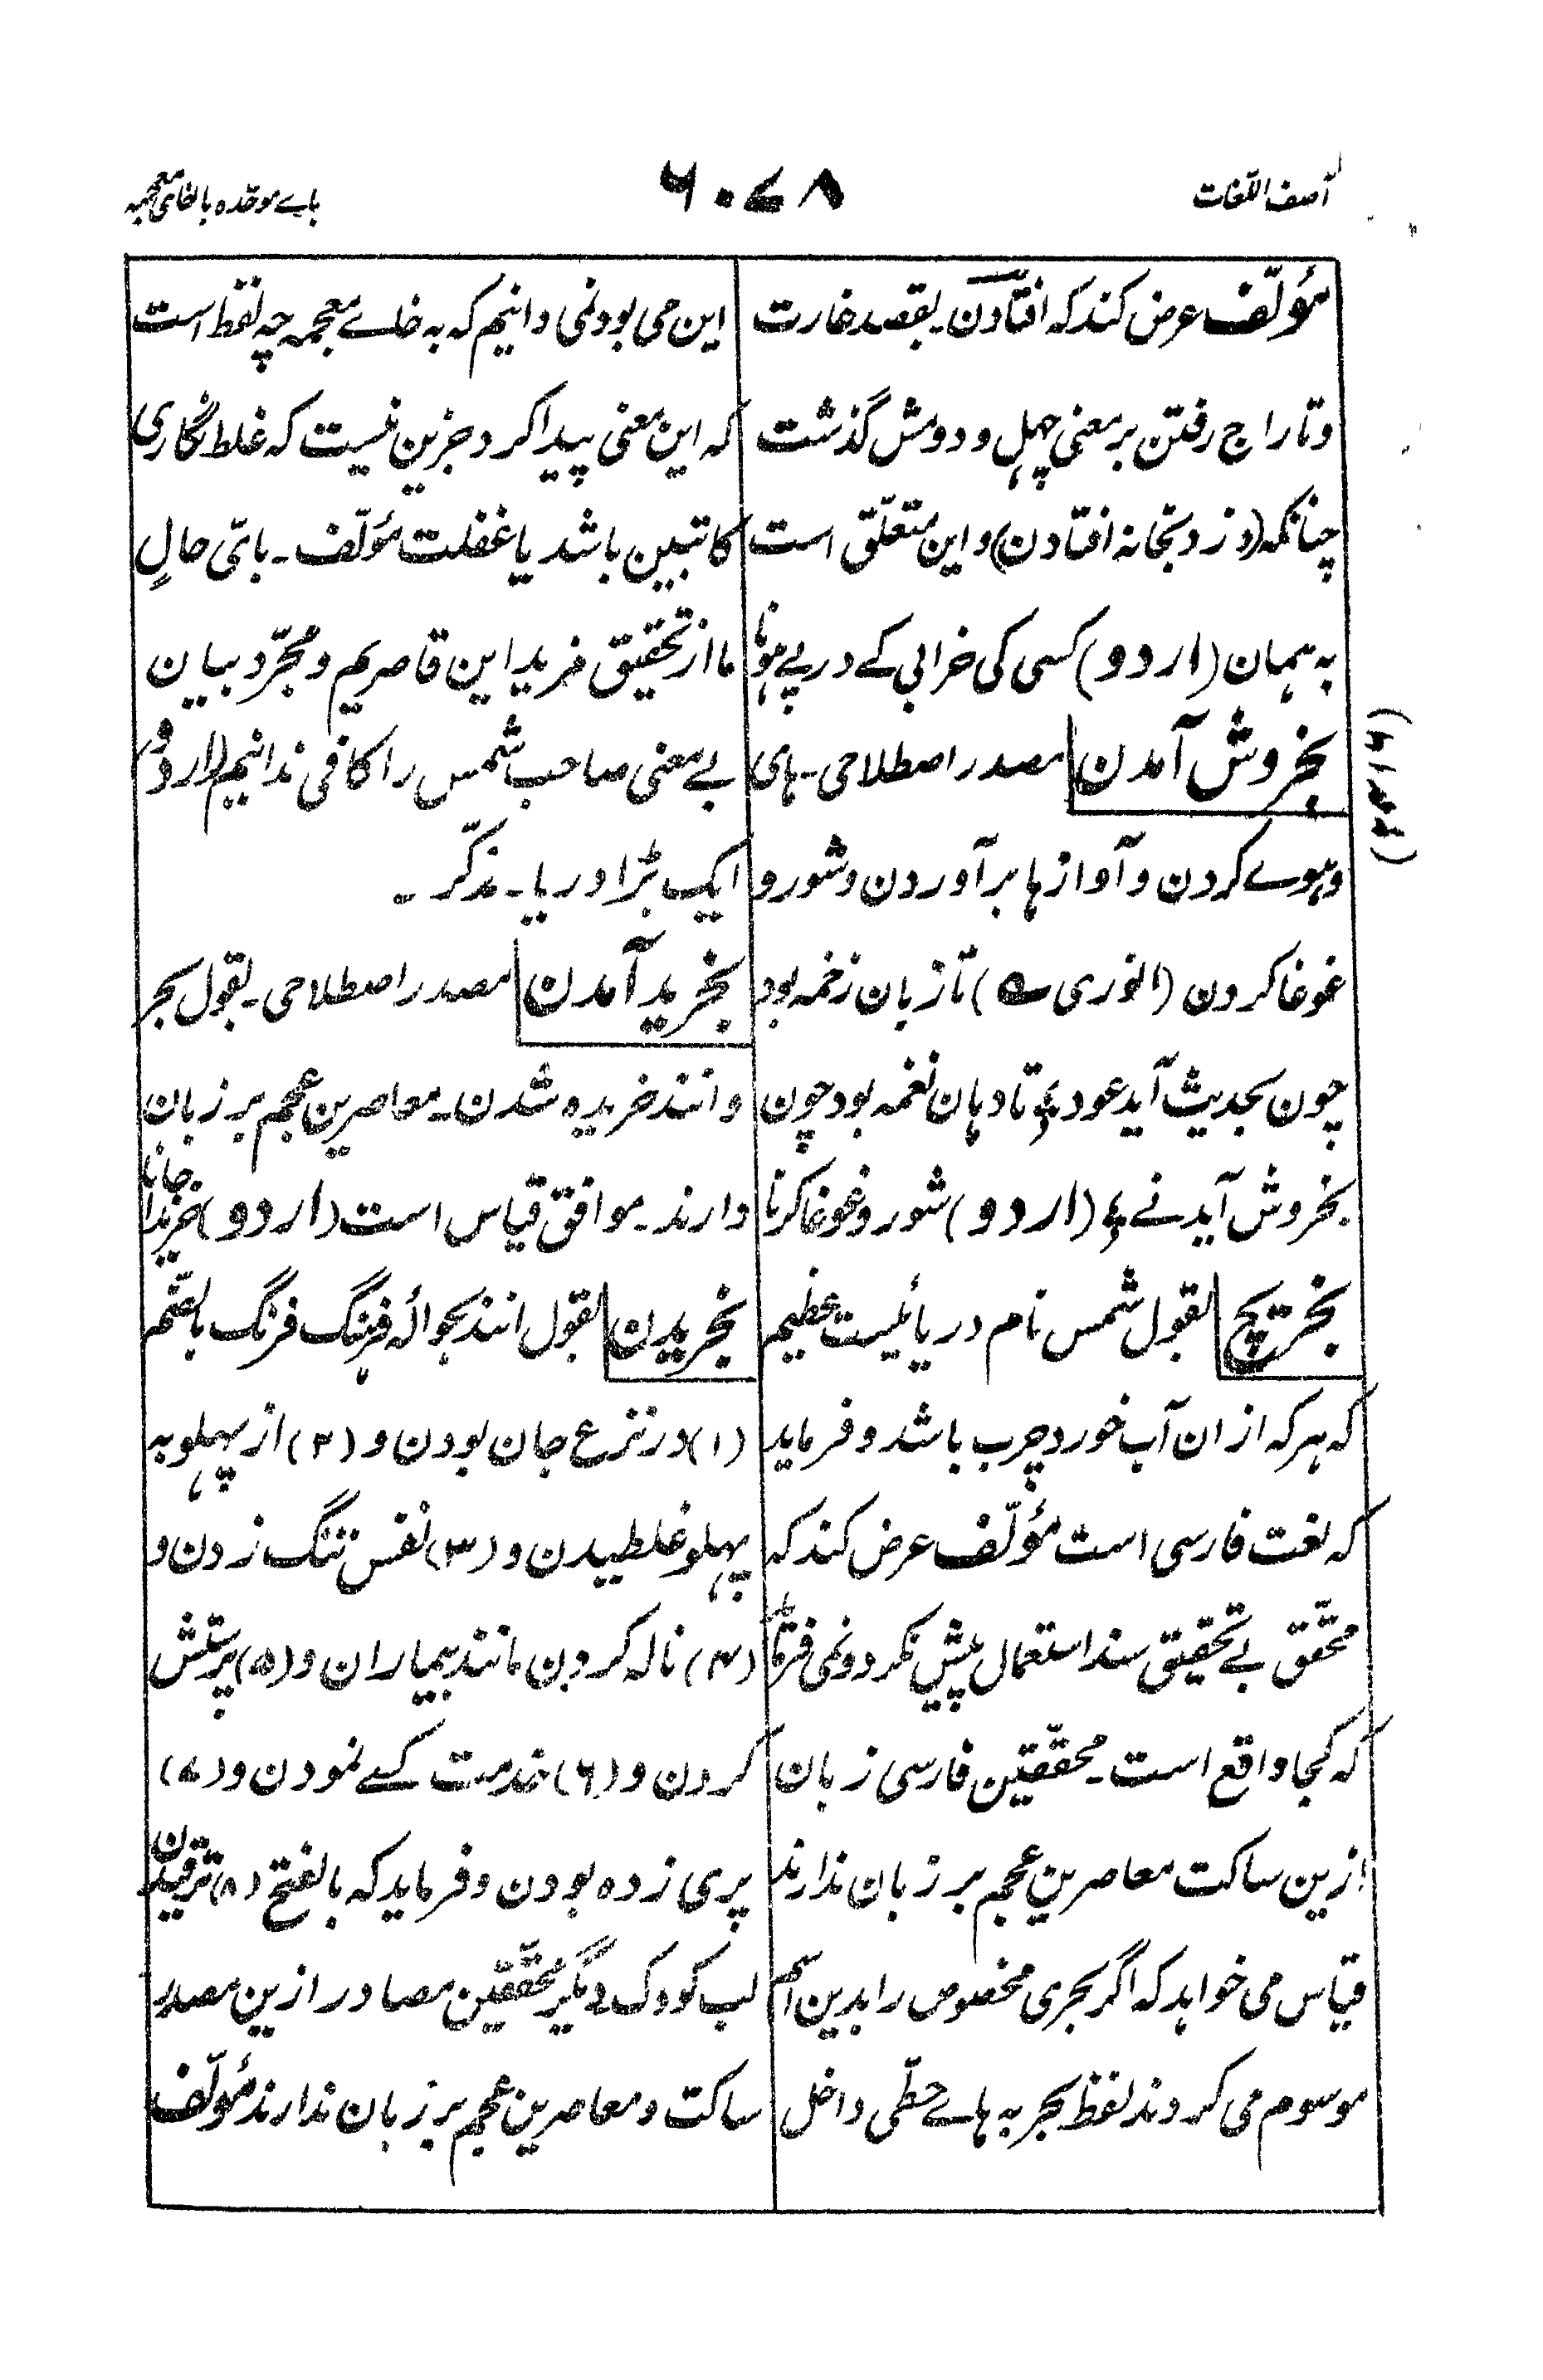 آصف اللغات
۶۰۷۸
باے موحّدہ باخاے معجمہ
مؤلّف عرض کند کہ افتادن بقصد غارت
و تاراج رفتن بر معنی چہل و دومش گذشت
چنانکہ (دزد بخانہ افتادن) و این متعلّق است
بہ ہمان (اردو) کسی کی خرابی کے درپے ہونا
بخروش آمدن مصدر اصطلاحی ۔ ہای
وہوے کردن و آوازہا برآوردن و شور و
غوغا کردن (انوری ؎) تا زبان زخمہ بود
چون بحدیث آید عود ؛ تا دہان نغمہ بود چون
بخروش آید نے ؛ (اردو) شور و غوغا کرنا
بخرتچ بقول شمس نام دریائیست عظیم
کہ ہرکہ ازان آب خورد چرب باشد و فرماید
کہ لغت فارسی است مؤلّف عرض کند کہ
محقّق بے تحقیق سند استعمال پیش نکرد و نمی فرماید
کہ کجا واقع است ۔ محقّقین فارسی زبان
ازین ساکت معاصرین عجم بر زبان ندارند
قیاس می خواہد کہ اگر بحری مخصوص را بدین اسم
موسوم می کردند لفظ بحر بہ ہاے حطّی داخل
این می بود نمی دانیم کہ بہ خاے معجمہ چہ لفظ است
کہ این معنی پیدا کرد جزین نیست کہ غلط نگاری
کاتبین باشد یا غفلت مؤلّف ۔ بایّ حالٍ
ما از تحقیق مزید این قاصریم و مجرّد بیان
بے معنی صاحب شمس را کافی ندانیم (اردو)
ایک بڑا دریا ۔ مذکّر ۔
بخرید آمدن مصدر اصطلاحی ۔ بقول بحر
و انند خریدہ شدن ۔ معاصرین عجم بر زبان
دارند ۔ موافق قیاس است (اردو) خریدا جانا
بخریدن بقول انند بحوالۂ فرہنگ فرنگ بالضّم
(۱) در نزع جان بودن و (۲) از پہلو بہ
پہلو غلطیدن و (۳) نفس تنگ زدن و
(۴) نالہ کردن مانند بیماران و (۵) پرستش
کردن و (۶) خدمت کسے نمودن و (۷)
پری زدہ بودن و فرماید کہ بالفتح (۸) ترقیدن
لب کودک دیگر محقّقین مصادر ازین مصدر
ساکت و معاصرین عجم بر زبان ندارند مؤلّف